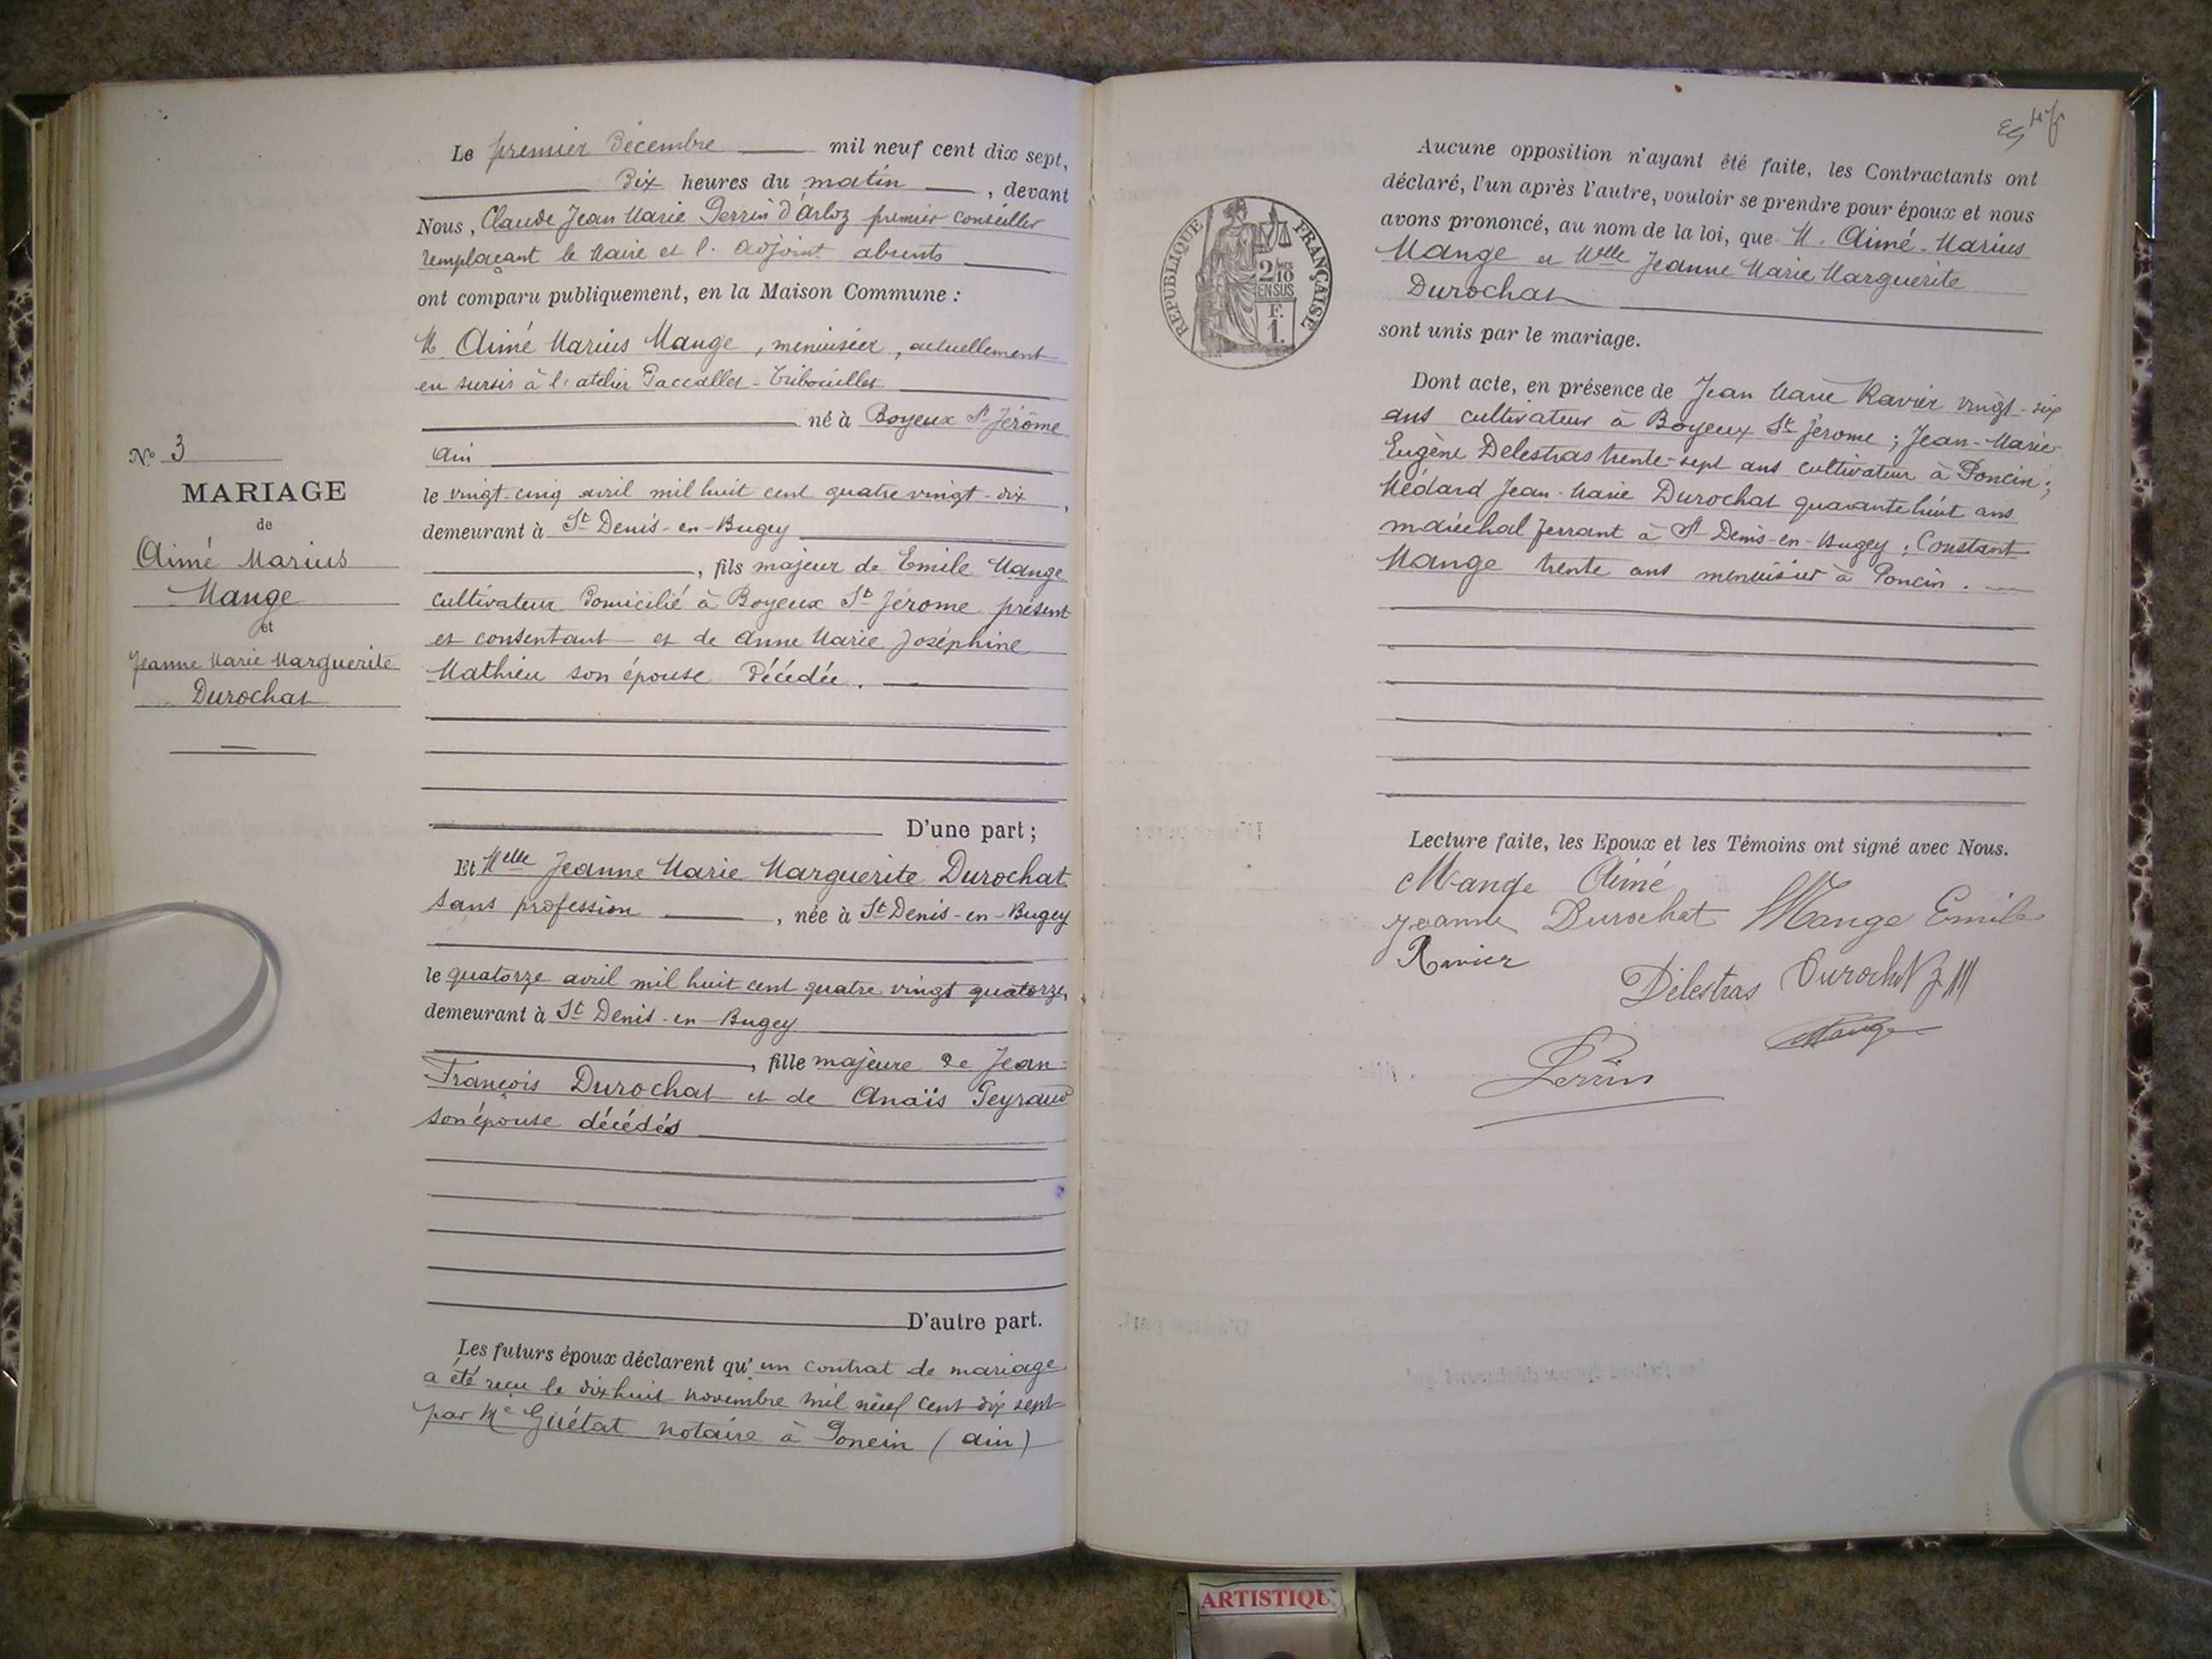 Le premier Décembre mil neuf cent dix sept,
Dix heures du matin, devant
Nous, Claude Jean Marie Perrin d'Arloz premier conseiller
remplaçant le Maire et l'adjoint absents
ont comparu publiquement, en la Maison Commune :
M. Aimé Marius Mange, menuisier, actuellement
en sursis à l'atelier Paccallet-Tribouillet
né à Boyeux St Jérôme
Ain
le vingt-cinq avril mil huit cent quatre vingt-dix,
demeurant à St Denis-en-Bugey
, fils majeur de Emile Mange
cultivateur domicilié à Boyeux St Jérome présent
et consentant et de Anne Marie Joséphine
Mathieu son épouse décédée.
D'une part ;
Et Melle Jeanne Marie Marguerite Durochat
sans profession, née à St Denis-en-Bugey
le quatorze avril mil huit cent quatre vingt quatorze,
demeurant à St Denis-en-Bugey
, fille majeure de Jean-
François Durochat et de Anaïs Peyraud
son épouse décédés
D'autre part.
Les futurs époux déclarent qu'un contrat de mariage
a été reçu le dix huit novembre mil neuf cent dix sept
par Me Guétat notaire à Poncin (Ain)
No 3
MARIAGE
de
Aimé Marius
Mange
et
Jeanne Marie Marguerite
Durochat
RÉPUBLIQUE FRANÇAISE
2/10
EN SUS
F.
1.
Aucune opposition n'ayant été faite, les Contractants ont
déclaré, l'un après l'autre, vouloir se prendre pour époux et nous
avons prononcé, au nom de la loi, que M. Aimé-Marius
Mange et Melle Jeanne Marie Marguerite
Durochat
sont unis par le mariage.
Dont acte, en présence de Jean Marie Ravier vingt-six
ans cultivateur à Boyeux St Jérome ; Jean-Marie
Eugène Delestras trente-sept ans cultivateur à Poncin ;
Médard Jean-Marie Durochat quarante huit ans
maréchal ferrant à St Denis-en-Bugey ; Constant
Mange trente ans menuisier à Poncin.
Lecture faite, les Epoux et les Témoins ont signé avec Nous.
Mange Aimé
Jeanne Durochat Mange Emile
Ravier
Délestras Durochat
Mange
Perrin
ARTISTIQU